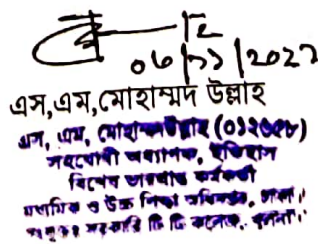 ০৬/১১/২০২২
এস,এম,মোহাম্মদ উল্লাহ
এস, এম, মোহাম্মদ উল্লাহ (০১২৭৫৮)
সহযোগী অধ্যাপক, ইতিহাস
বিশেষ ভারপ্রাপ্ত কর্মকর্তা
মাধ্যমিক ও উচ্চ শিক্ষা অধিদপ্তর, ঢাকা।
সরকারি কলেজ, খুলনা।